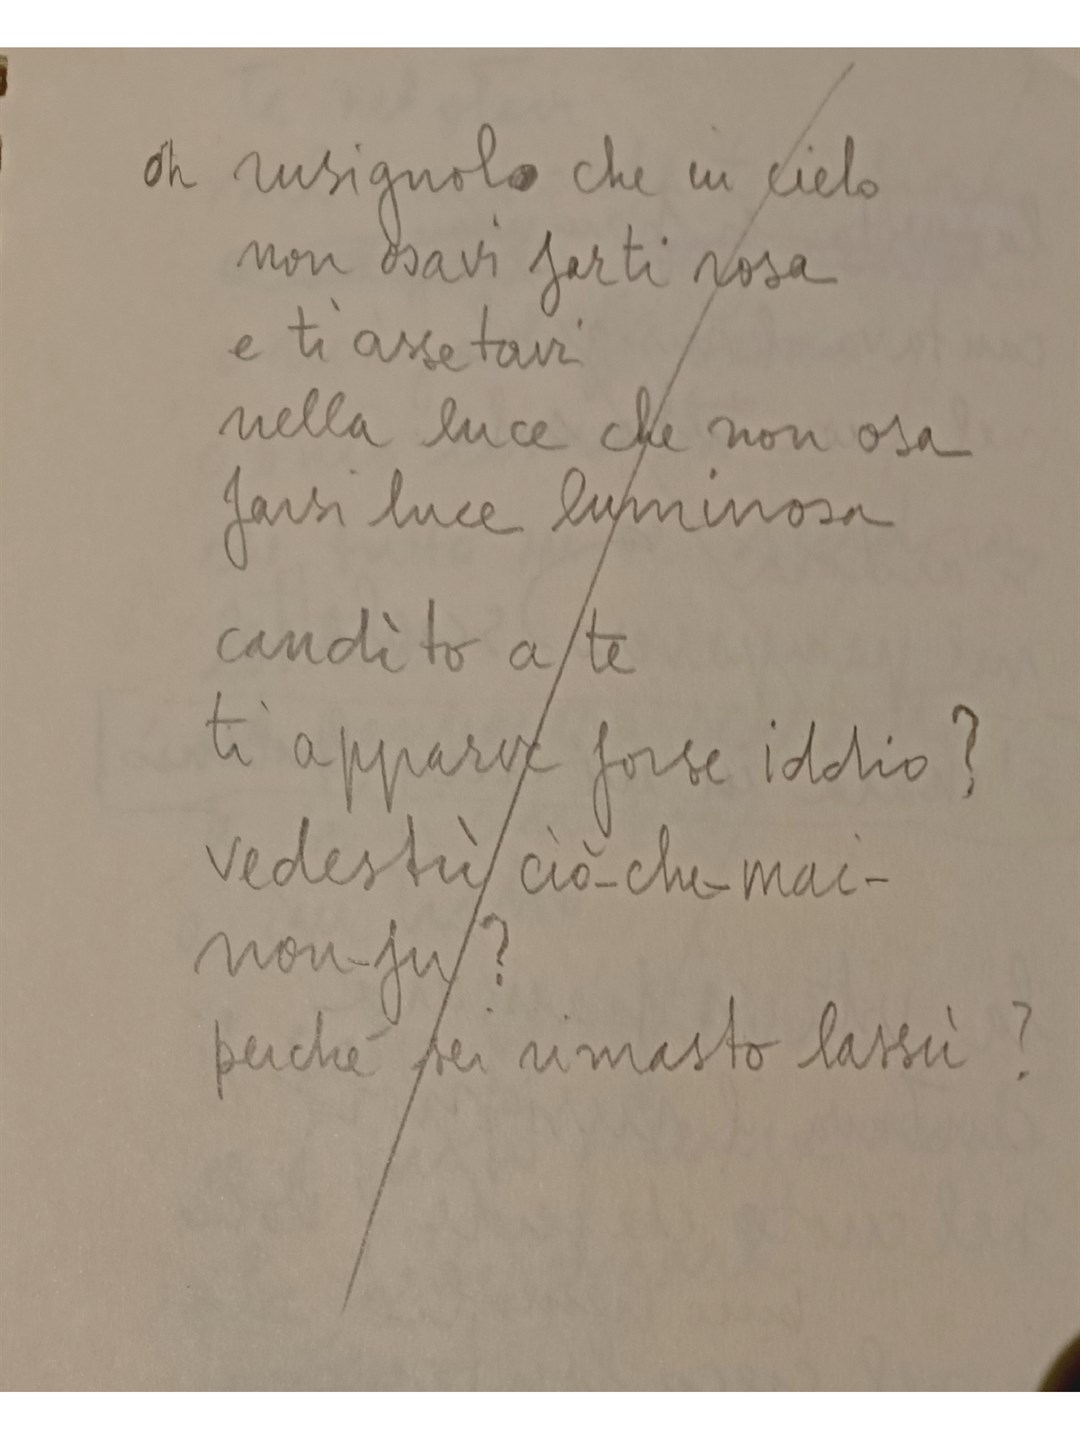 oh rusignolo che in cielo
non osavi farti rosa
e ti assetavi
nella luce che non osa
farsi luce luminosa
candìto a te
ti apparve forse iddio?
vedestù ciò-che-mai-
non-fu?
perché sei rimasto lassù?